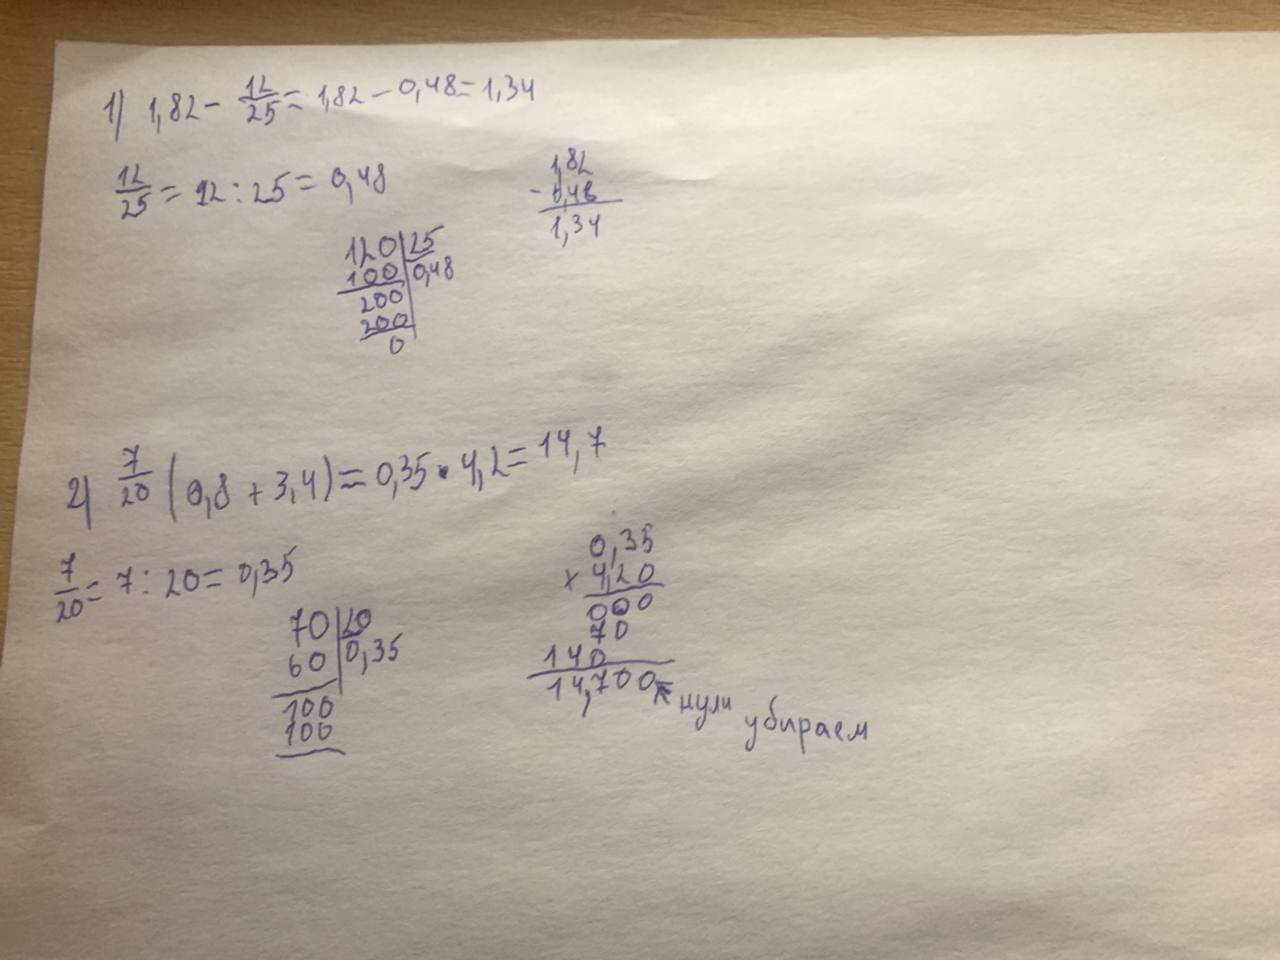 1) 1,82 - 12/25 = 1,82 - 0,48 = 1,34
12/25 = 12 : 25 = 0,48
120 | 25
100 | 0,48
200
200
0
1,82
- 0,48
1,34
2) 7/20 (0,8 + 3,4) = 0,35 · 4,2 = 14,7
7/20 = 7 : 20 = 0,35
70 | 20
60 | 0,35
100
100
0,35
× 4,20
000
70
140
14,700 ← нули убираем